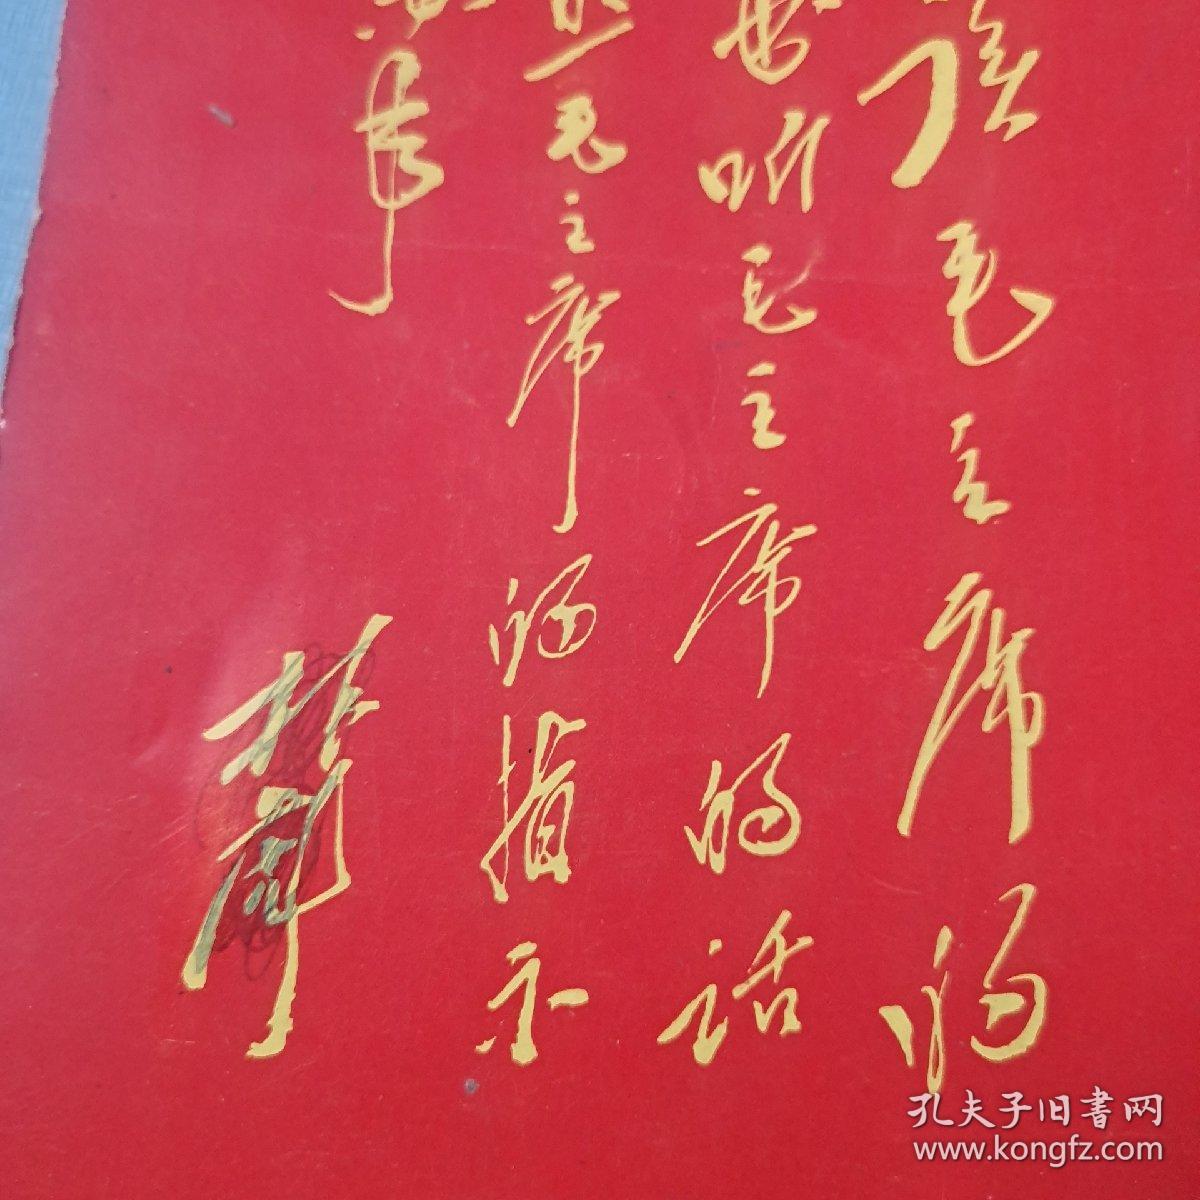 读毛主席的
听毛主席的话
照毛主席的指示
办事
林彪
孔夫子旧書网
www.kongfz.com